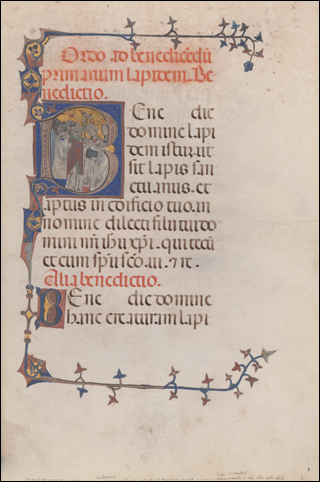 Ordo ad benedicēdū
primarium lapidem. Be
nedictio.
BEne dic
domine lapi
dem istum. ut
sit lapis san
ctuarius. et
aptus in edificio tuo. in
nomine dilecti filii tui do
mini nr̄i ihū xp̄i. qui tecū
et cum sp̄u sc̄o. ui. ⁊ re.
Alia benedictio.
BEne dic domine
hanc creaturam lapi